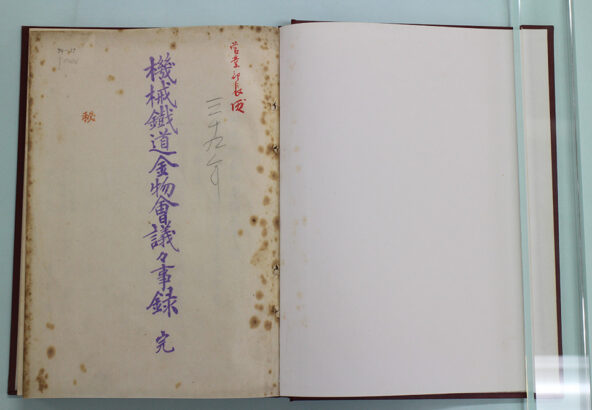 営業部長
三十九年
機械鐵道金物會議々事録 完
秘